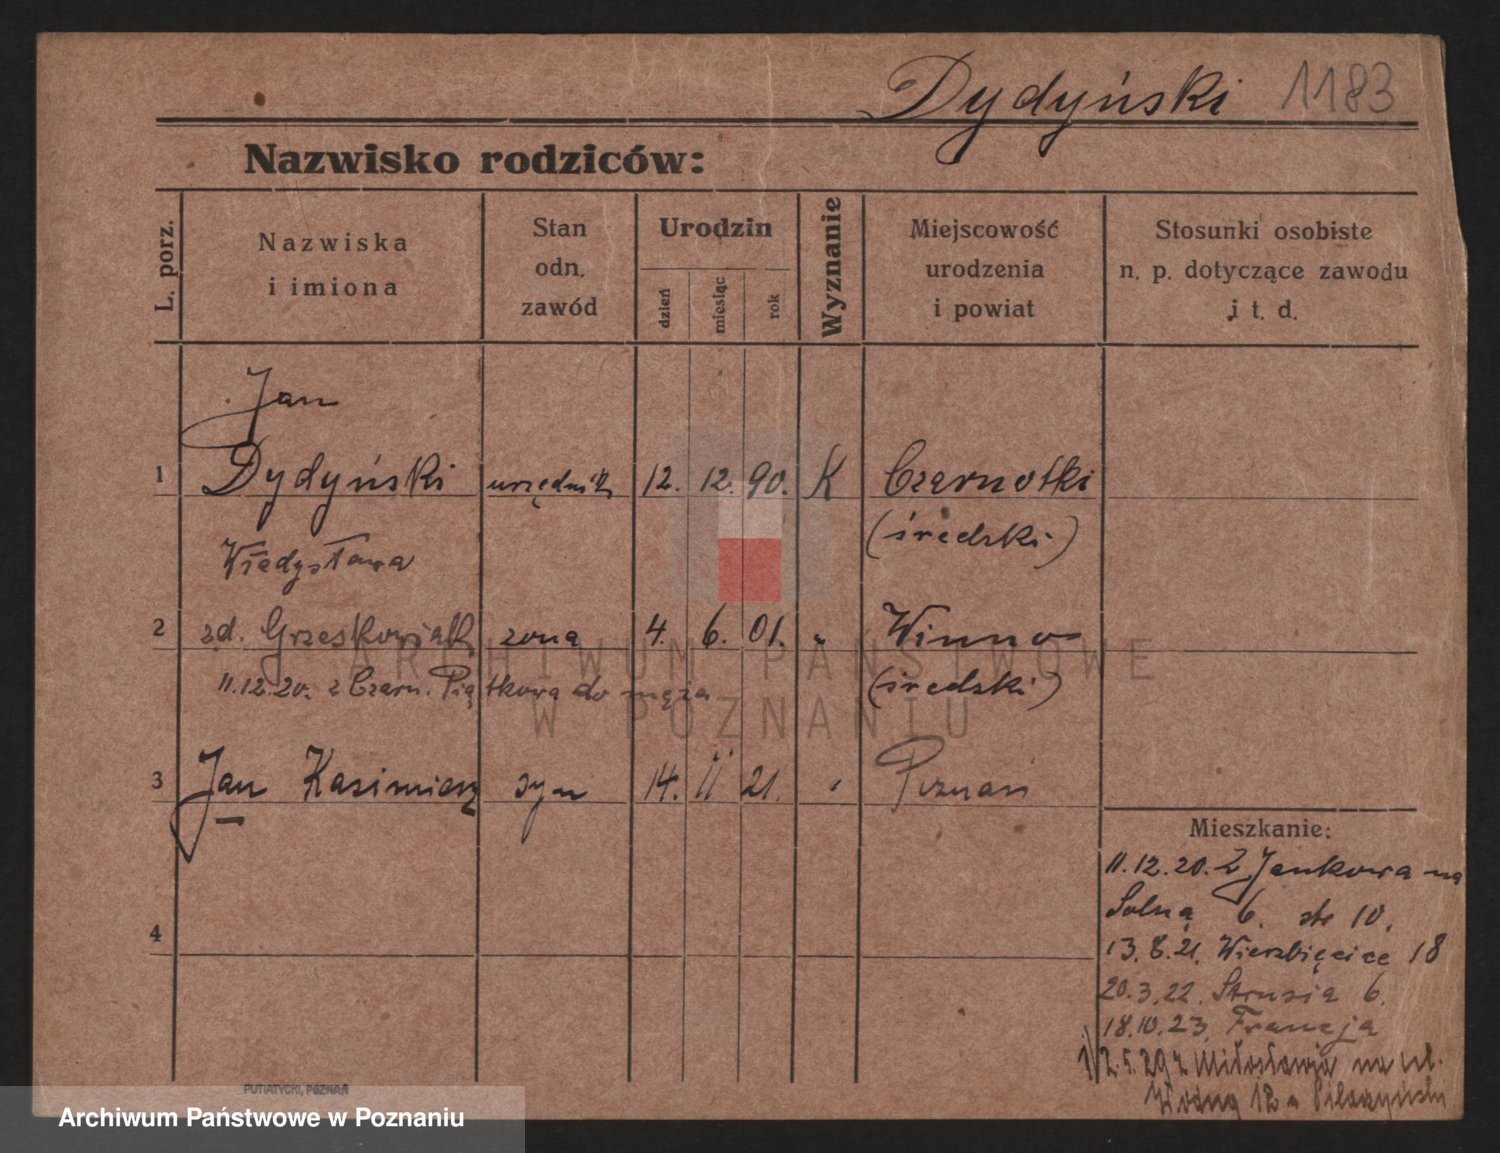 Dydyński 1183
Nazwisko rodziców:
L. porz.
Nazwiska
i imiona
Stan
odn.
zawód
Urodzin
dzień
miesiąc
rok
Wyznanie
Miejscowość
urodzenia
i powiat
Stosunki osobiste
n. p. dotyczące zawodu
i t. d.
Jan
1 Dydyński urzędnik 12. 12. 90. K Czarnotki
(średzki)
Władysława
2 zd. Grześkowiak żona 4. 6. 01. " Winno
11.12.20. z Czarn. Piątkowa do męża (średzki)
3 Jan Kazimierz syn 14. II 21. " Poznań
4
Mieszkanie:
11.12.20. Z Jankowa na
Solną 6. 10.
13.8.21. Wierzbięcice 18
20.3.22. Strusia 6.
18.10.23. Francja
1/2.5.29 z Miłosławia na ul.
Wodną 12
ARCHIWUM PAŃSTWOWE
W POZNANIU
PUTIATYCKI, POZNAŃ
Archiwum Państwowe w Poznaniu